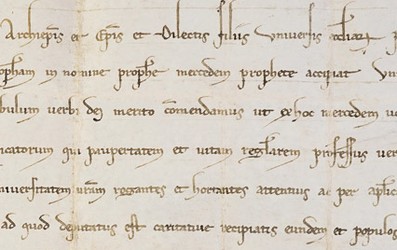 Archiep̄is et Ep̄is et Dilectis filiis Universis
ꝓpham in nomine prophe mercedem prophete accipiat Un
bulum verbi dei merito cōmendamus ut ex hoc mercedem
icatorum qui paupertatem et vitam reglarem professus ver
niversitatem ur̄am rogantes et hortantes attentius ac per ap̄lic
ad quod deputatus est caritative recipiatis eundem et populos